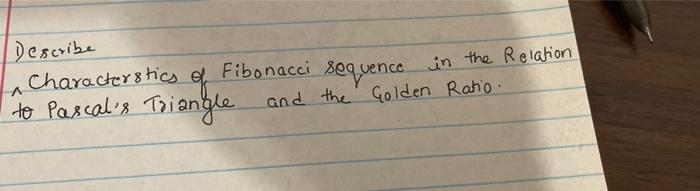 Describe
^ Characterstics of Fibonacci sequence in the Relation
to Pascal's Triangle and the Golden Ratio.